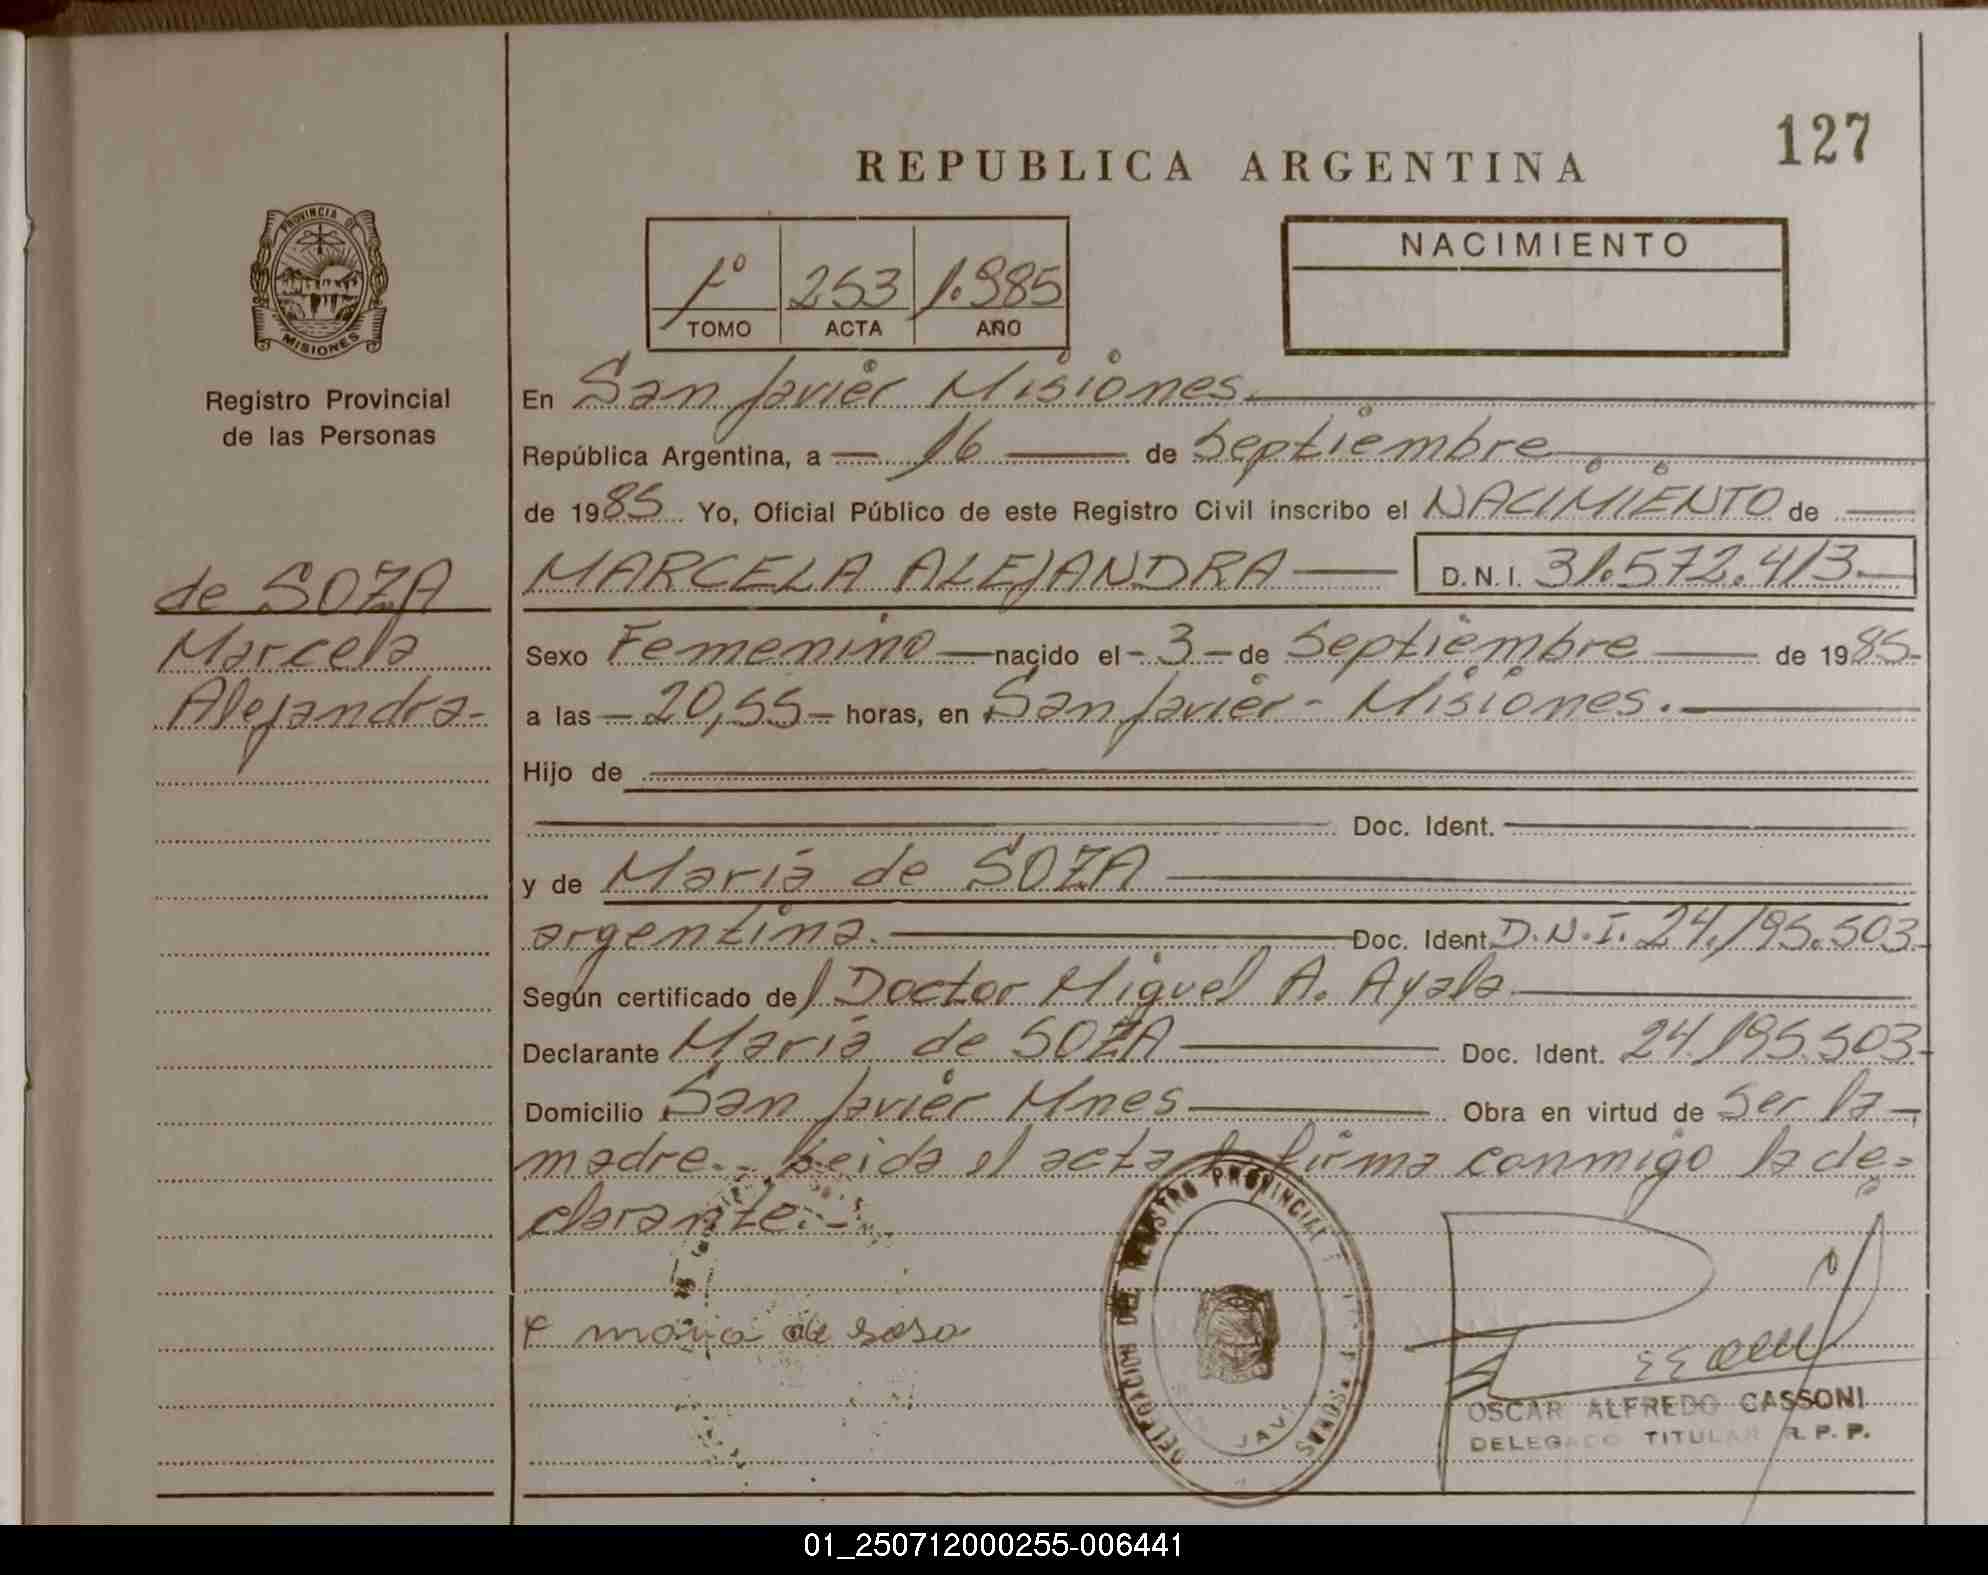 127
REPUBLICA ARGENTINA
PROVINCIA DE
MISIONES
Registro Provincial
de las Personas
1º 253 1.985
TOMO ACTA AÑO
NACIMIENTO
En San Javier Misiones.
República Argentina, a 16 de Septiembre
de 1985 Yo, Oficial Público de este Registro Civil inscribo el NACIMIENTO de
de SOZA
Marcela
Alejandra-
MARCELA ALEJANDRA D.N.I. 31.572.413.
Sexo Femenino nacido el - 3 - de Septiembre de 1985-
a las 20,55 horas, en San Javier - Misiones.
Hijo de
Doc. Ident.
y de María de SOZA
argentina. Doc. Ident. D.N.I. 24.195.503.
Según certificado del Doctor Miguel A. Ayala
Declarante María de SOZA Doc. Ident. 24.195.503
Domicilio San Javier Mnes Obra en virtud de ser la
madre. Leida el acta la firma conmigo la de=
clarante.-
maria de sosa
DELEGACION DEL REGISTRO PROVINCIAL
JAVI
OSCAR ALFREDO CASSONI
DELEGADO TITULAR R. P. P.
01_250712000255-006441